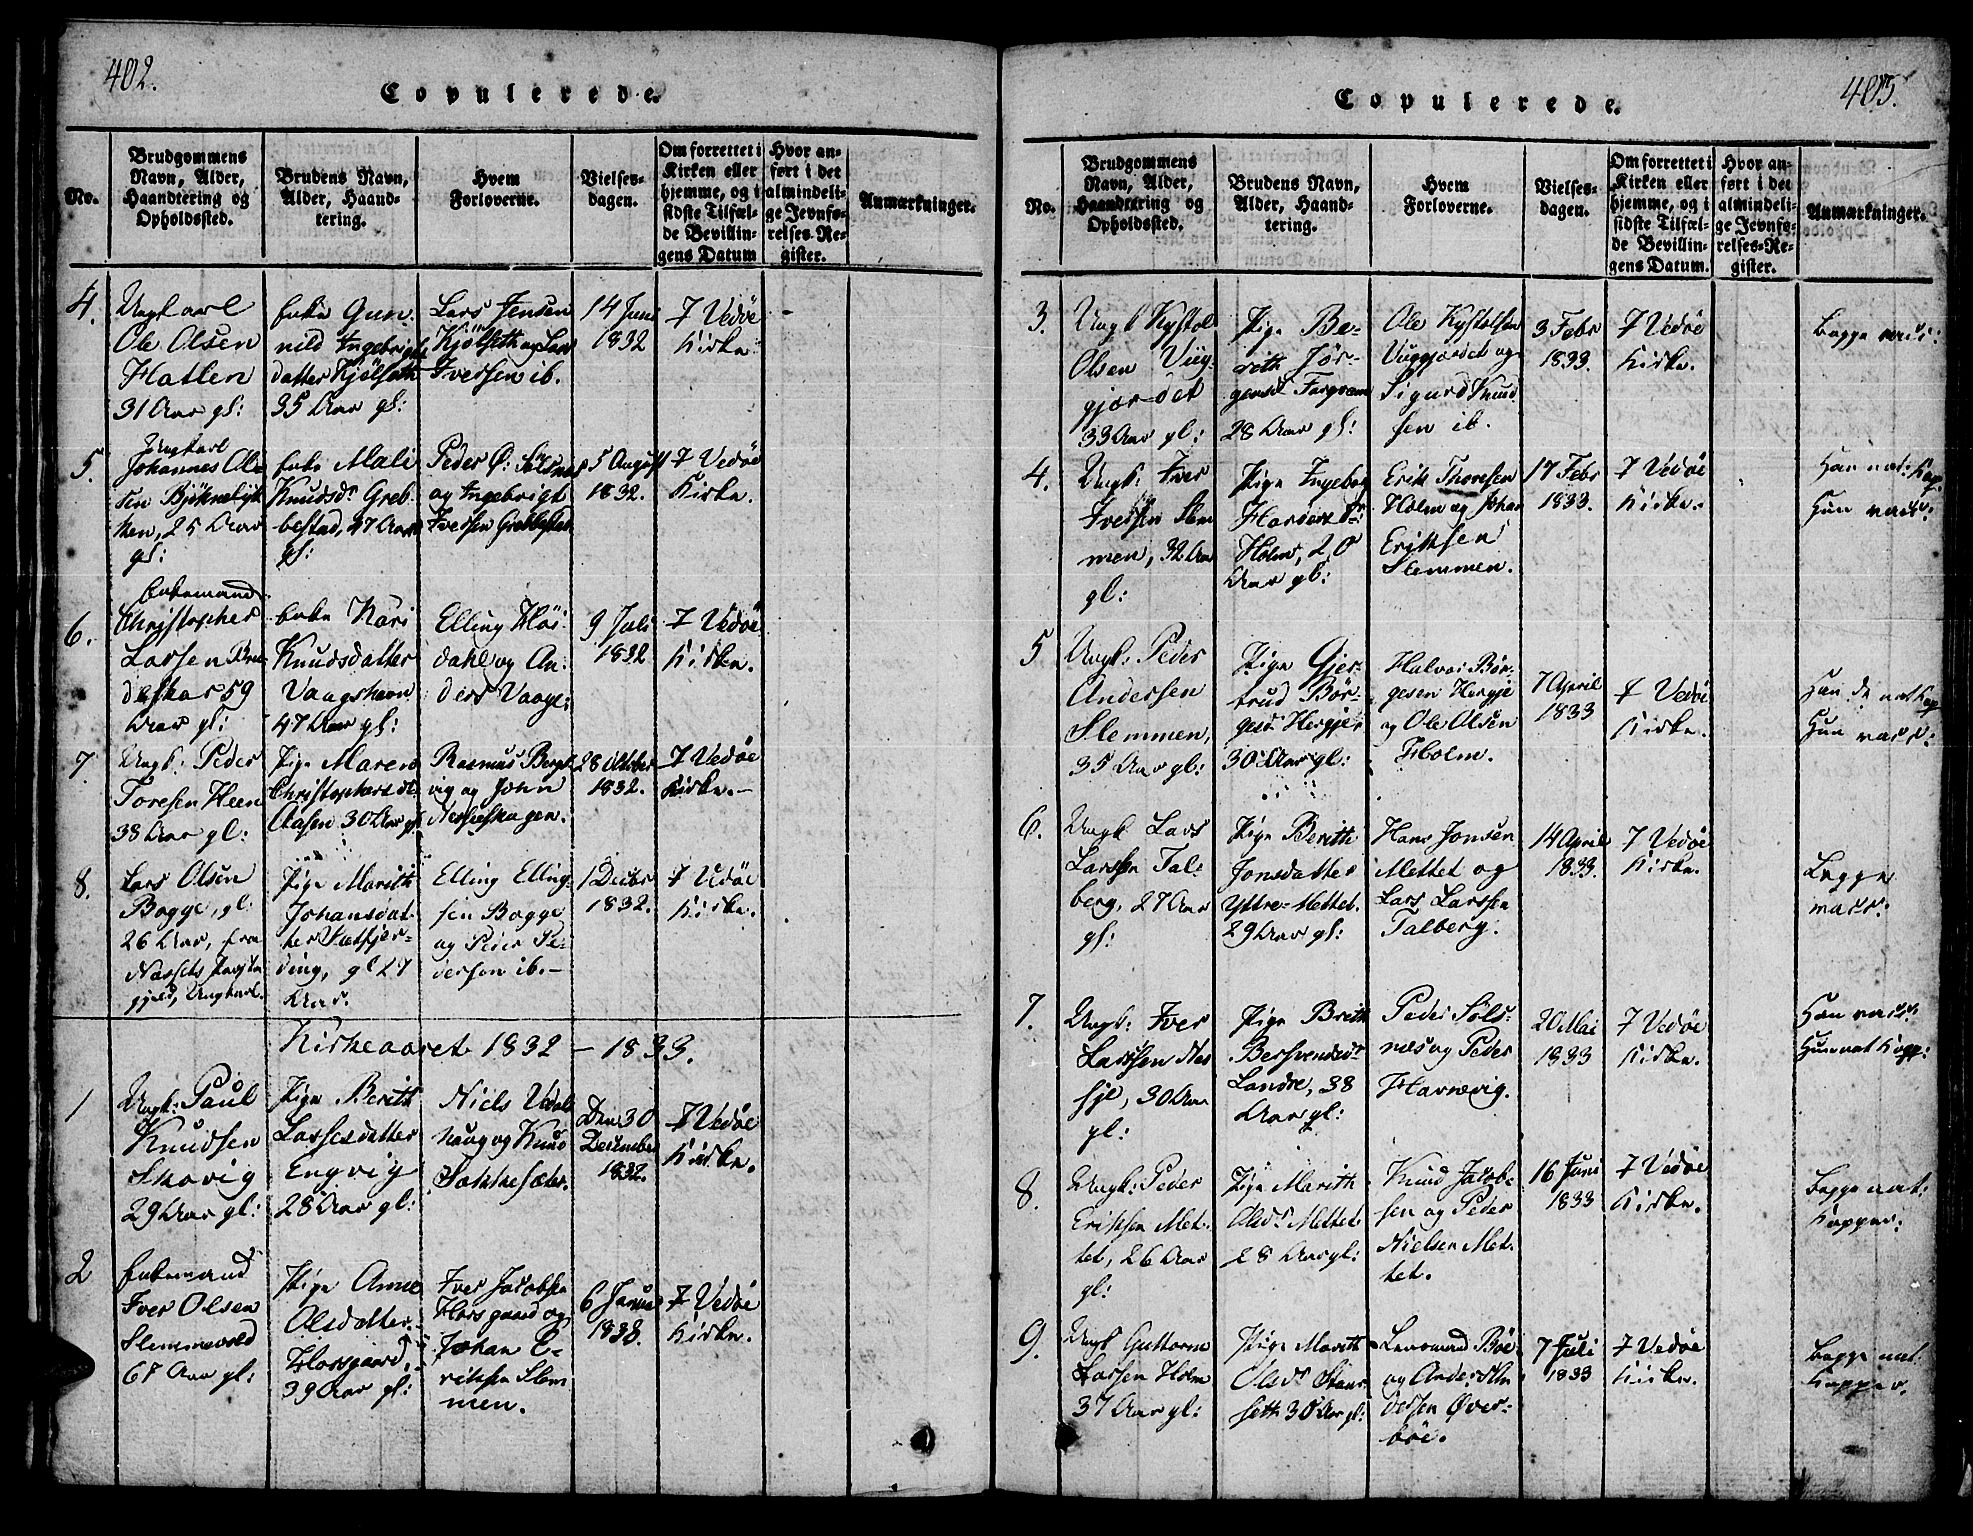 402.
Copulerede.
No.
Brudgommens
Navn, Alder,
Haandtering og
Opholdssted.
Brudens Navn,
Alder, Haand-
tering.
Hvem
Forloverne.
Vielses-
dagen.
Om forrettet i
Kirken eller
hjemme, og i
sidste Tilfæl-
de Bevillin-
gens Datum
Hvor an-
ført i det
almindeli-
ge Jevnfø-
relses-Re-
gister.
Anmærkninger.
4.
Ungkarl
Ole Olsen
Hatlen
31 Aar gl:
Enke Gun-
nild Ingebrigts
datter Kjölseth
35 Aar gl:
Lars Jensen
Kjölseth og Lars
Iversen ib.
14 Juni
1832
I Vedöe
Kirke.
5.
Ungkarl
Johannes Ole
sen
ken, 25 Aar
gl:
Enke Mali
Knudsdr Greb-
bestad, 47 Aar
gl:
Peder Ø: Sølsnes
og Ingebrigt
Iversen Grebbestad
5 August
1832.
I Vedöe
Kirke.
6.
Enkemand
Christopher
Larsen
deskar 59
Aar gl:
Enke Kari
Knudsdatter
Vaagshavn
47 Aar gl:
Elling Höi-
dahl og An-
ders Vaage:
9 Juli
1832
I Vedöe
Kirke.
7.
Ungk: Peder
Toresen Heen
38 Aar gl:
Pige Maren
Christophersdr
Aasen 30 Aar gl
Rasmus Berg-
vig og John
28 October
1832.
I Vedöe
Kirke.-
8.
Lars Olsen
Bogge, gl:
26 Aar, fra
Næssets Præste
gjeld, Ungkarl.
Pige Marith
Johansdat-
ter Sætfjer-
ding, gl 27
Aar.
Elling Elling-
sen Bogge
og Peder Pe-
dersen ib.-
1 Decbr
1832.
I Vedöe
Kirke.
Kirkeaaret 1832 - 1833.
1
Ungk: Paul
Knudsen
Skavig
29 Aar gl:
Pige Berith
Lassesdatter
Engvig
28 Aar gl:
Niels Vedals
houg og Knud
Sækkesæter.
Den 30
December
1832.
I Vedöe
Kirke.
2
Enkemand
Iver Olsen
Slemmevold
67 Aar gl:
Pige Anne
Olsdatter
Horsgaard,
39 Aar gl:
Iver Jacobsen
Horsgaard og
Johan E-
riksen Slem
men.
6 Januar
1833.
I Vedöe
Kirke.
403.
Copulerede.
No.
Brudgommens
Navn, Alder,
Haandtering og
Opholdssted.
Brudens Navn,
Alder, Haand-
tering.
Hvem
Forloverne.
Vielses-
dagen.
Om forrettet i
Kirken eller
hjemme, og i
sidste Tilfæl-
de Bevillin-
gens Datum.
Hvor an-
ført i det
almindeli-
ge Jevnfø-
relses-Re-
gister.
Anmærkninger.
3.
Ungk Kystol
Olsen Viig-
gjærdet
33 Aar gl:
Pige Be-
reth Jör-
gensdr
28 Aar gl:
Ole Kystolsen
Viiggjærdet og
Sigurd Knud
sen ib.
3 Febr
1833.
I Vedöe
Kirke.
Begge vacc:
4.
Ungk: Iver
Iversen Slem
men, 32 Aar
gl:
Pige Ingebor
Holm, 20
Aar gl:
Erik Thoresen
Holm og Johan
Eriksen
Slemmen.
17 Febr
1833.
I Vedöe
Kirke.
Han nat: Kop.
Hun vacc:
5
Ungk: Peder
Andersen
Slemmen,
35 Aar gl:
Pige Gjer-
trud Bör-
gesdr Hergje
30 Aar gl:
Halvor Bör-
gesen Hergje
og Ole Olsen
Holm.
7 April
1833
I Vedöe
Kirke.
Han nat Kop
Hun vacc:
6.
Ungk Lars
Larssen Tal-
berg, 27 Aar
gl:
Pige Berith
Jonsdatter
Yttre-Mettet.
29 Aar gl:
Hans Jonsen
Mettet og
Lars Larssen
Talberg.
14 April
1833.
I Vedöe
Kirke.
Begge
vacc:
7.
Ungk: Iver
Larssen Nes
sje, 30 Aar
gl:
Pige Breth
Bersvendsdr
Sandøe, 38
Aar gl:
Peder Söls-
næs og Peder
Havnevig.
20 Mai
1833
I Vedöe
Kirke.
Han vacc:
Hun nat Kopp:
8.
Ungk: Peder
Eriksen Met-
tet, 26 Aar
gl:
Pige Marith
Olsdr Mettet
28 Aar gl:
Knud Jacob-
sen og Peder
Nielsen Met-
tet.
16 Juni
1833
I Vedöe
Kirke.
Begge nat:
Kopper:
9.
Ungk Guttorm
Larssen Holm
37 Aar gl:
Pige Marith
Olsdr
seth 30 Aar gl:
Lensmand Böe
og Anders An
dersen Över-
böe.
7 Juli
1833
I Vedöe
Kirke.
Begge nat:
Kopper.